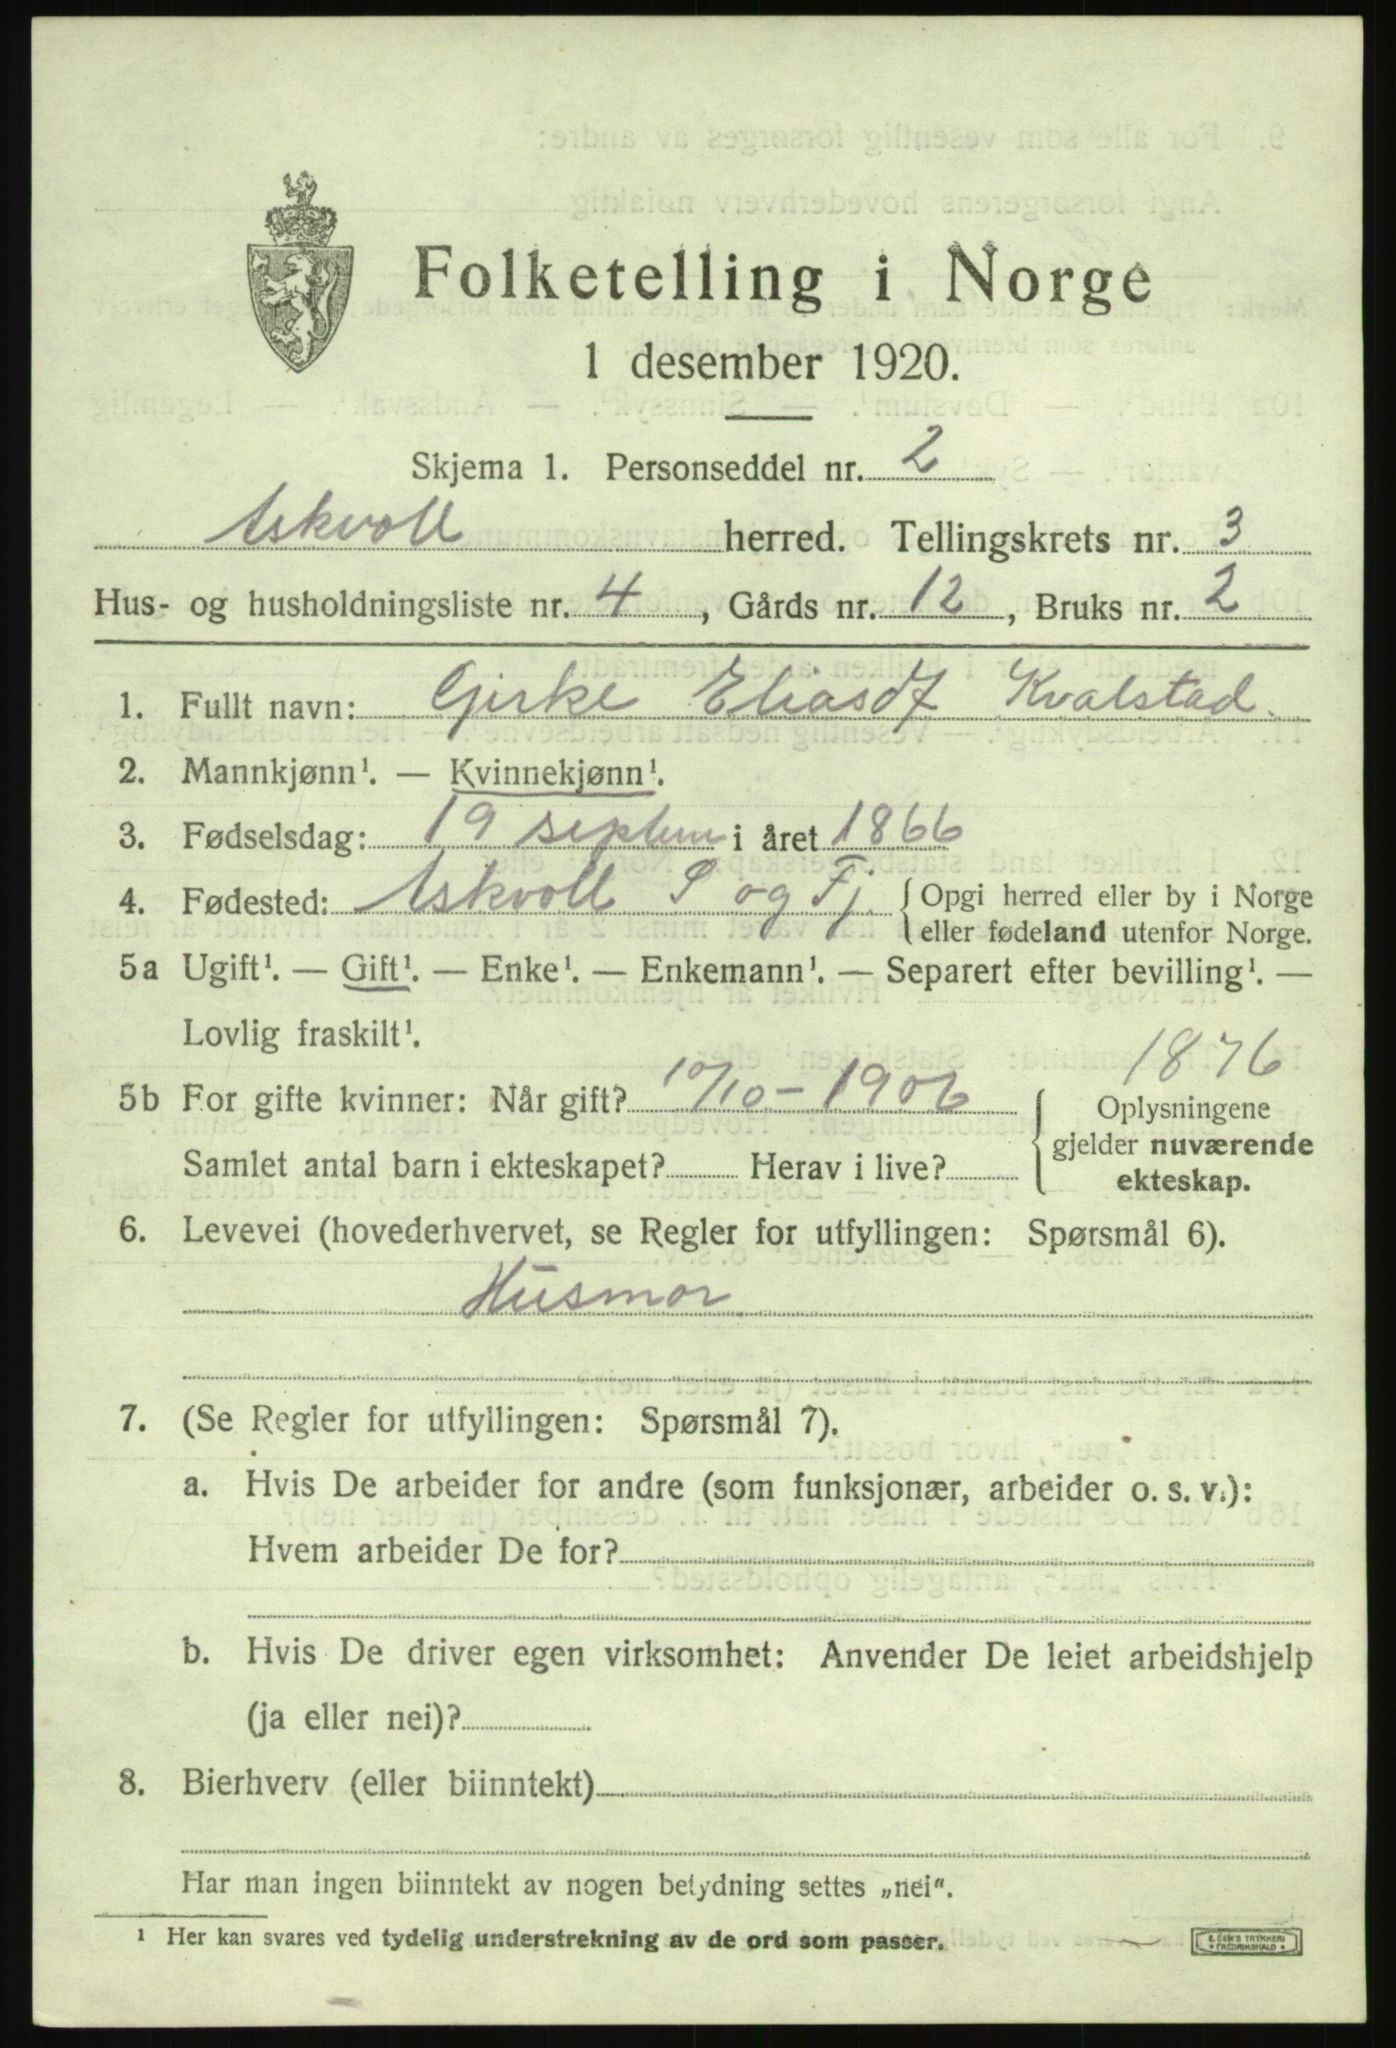 Folketelling i Norge
1 desember 1920.
Skjema 1. Personseddel nr. 2
Askvoll herred. Tellingskrets nr. 3
Hus- og husholdningsliste nr. 4, Gårds nr. 12, Bruks nr. 2
1. Fullt navn: Gjirke Eliasdt Kvalstad
2. Mannkjønn¹. — Kvinnekjønn¹.
3. Fødselsdag: 19 septem i året 1866
4. Fødested: Askvoll S og Fj. { Opgi herred eller by i Norge
eller fødeland utenfor Norge.
5a Ugift¹. — Gift¹. — Enke¹. — Enkemann¹. — Separert efter bevilling¹. —
Lovlig fraskilt¹.
1876
5b For gifte kvinner: Når gift? 10/10 - 1906
Samlet antal barn i ekteskapet? Herav i live?
{ Oplysningene
gjelder nuværende
ekteskap.
6. Levevei (hovederhvervet, se Regler for utfyllingen: Spørsmål 6).
Husmor
7. (Se Regler for utfyllingen: Spørsmål 7).
a. Hvis De arbeider for andre (som funksjonær, arbeider o. s. v.):
Hvem arbeider De for?
b. Hvis De driver egen virksomhet: Anvender De leiet arbeidshjelp
(ja eller nei)?
8. Bierhverv (eller biinntekt)
Har man ingen biinntekt av nogen betydning settes „nei“.
¹ Her kan svares ved tydelig understrekning av de ord som passer.
E. SEM'S TRYKKERI
* FREDRIKSHALD *